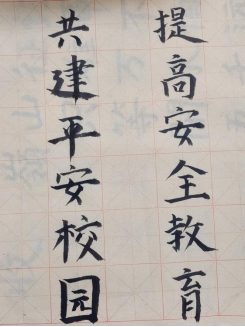 提高安全教育
共建平安校园